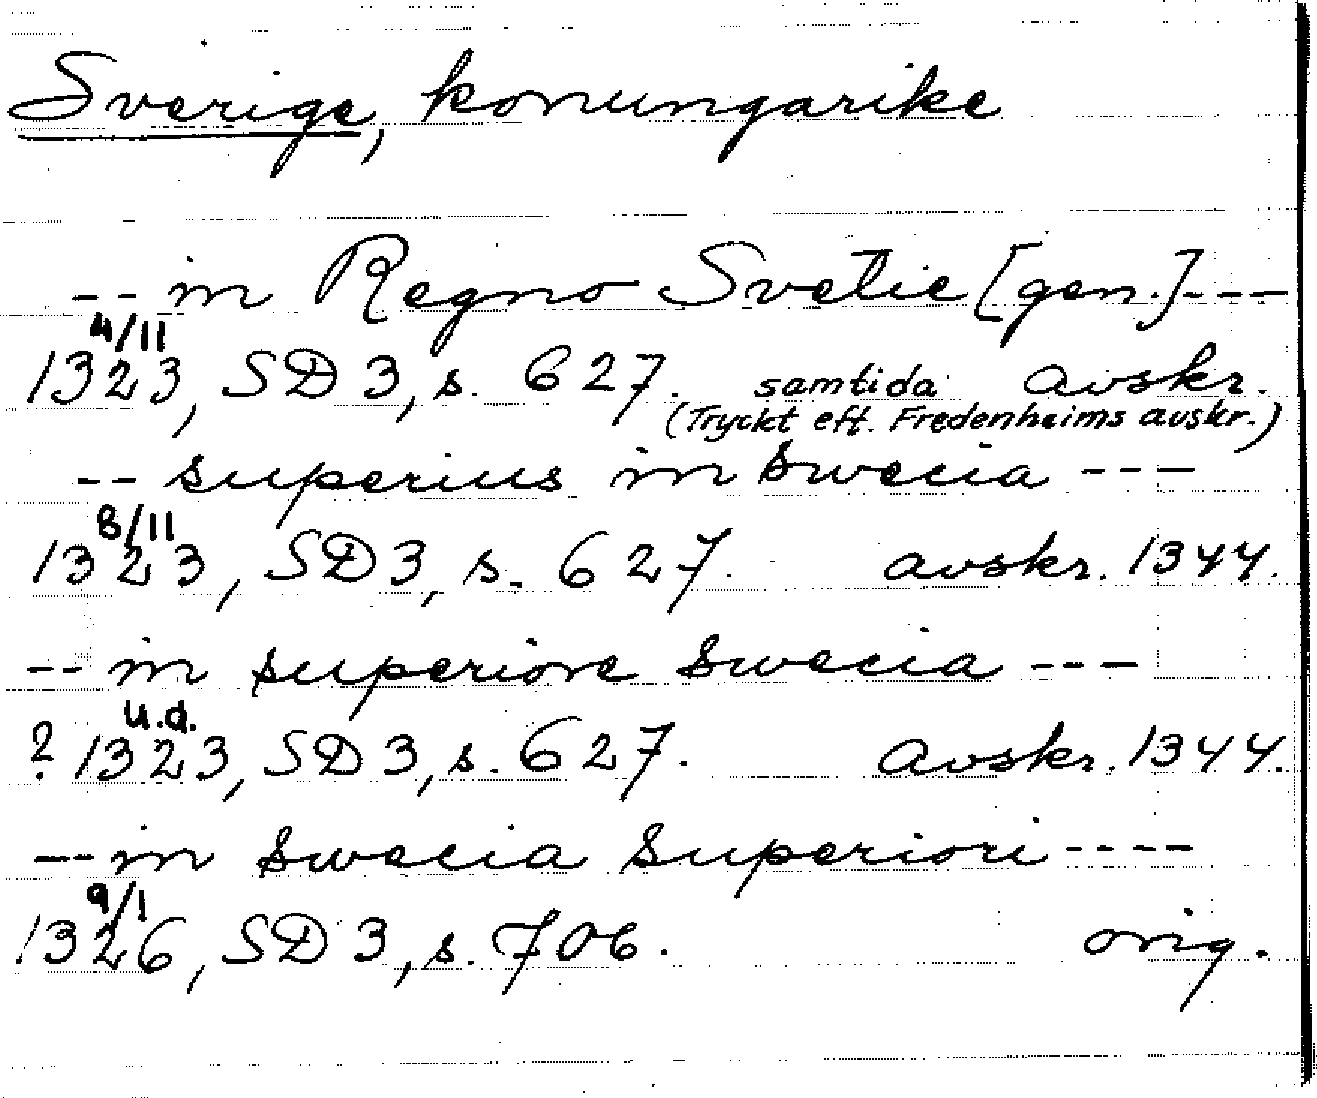 Sverige, konungarike
-- in Regno Svetie [gen.] ---
4/11
1323, SD 3, s. 627. samtida avskr.
(Tryckt eft. Fredenheims avskr.)
-- superius in Swecia ---
8/11
1323, SD 3, s. 627. avskr. 1344.
-- in superiore Swecia ---
u.d.
? 1323, SD 3, s. 627. avskr. 1344.
-- in Swecia Superiori ----
9/1
1326, SD 3, s. 706. orig.